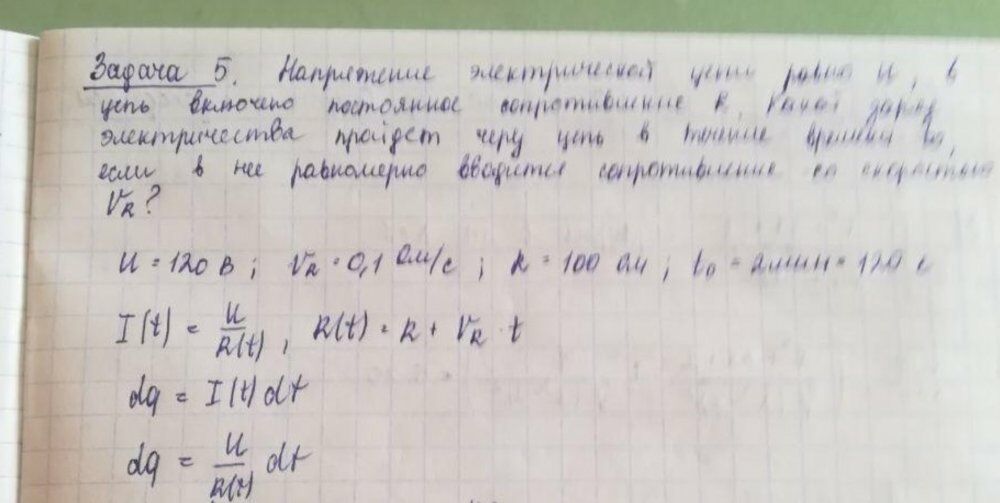 Задача 5. Напряжение электрической цепи равно U, в
цепь включено постоянное сопротивление R. Какой заряд
электричества пройдет через цепь в течение времени t₀,
если в нее равномерно вводится сопротивление со скоростью
V_R?
U = 120 В ; V_R = 0,1 Ом/с ; R = 100 Ом ; t₀ = 2мин = 120 с
I(t) = U/R(t), R(t) = R + V_R · t
dq = I(t) dt
dq = U/R(t) dt